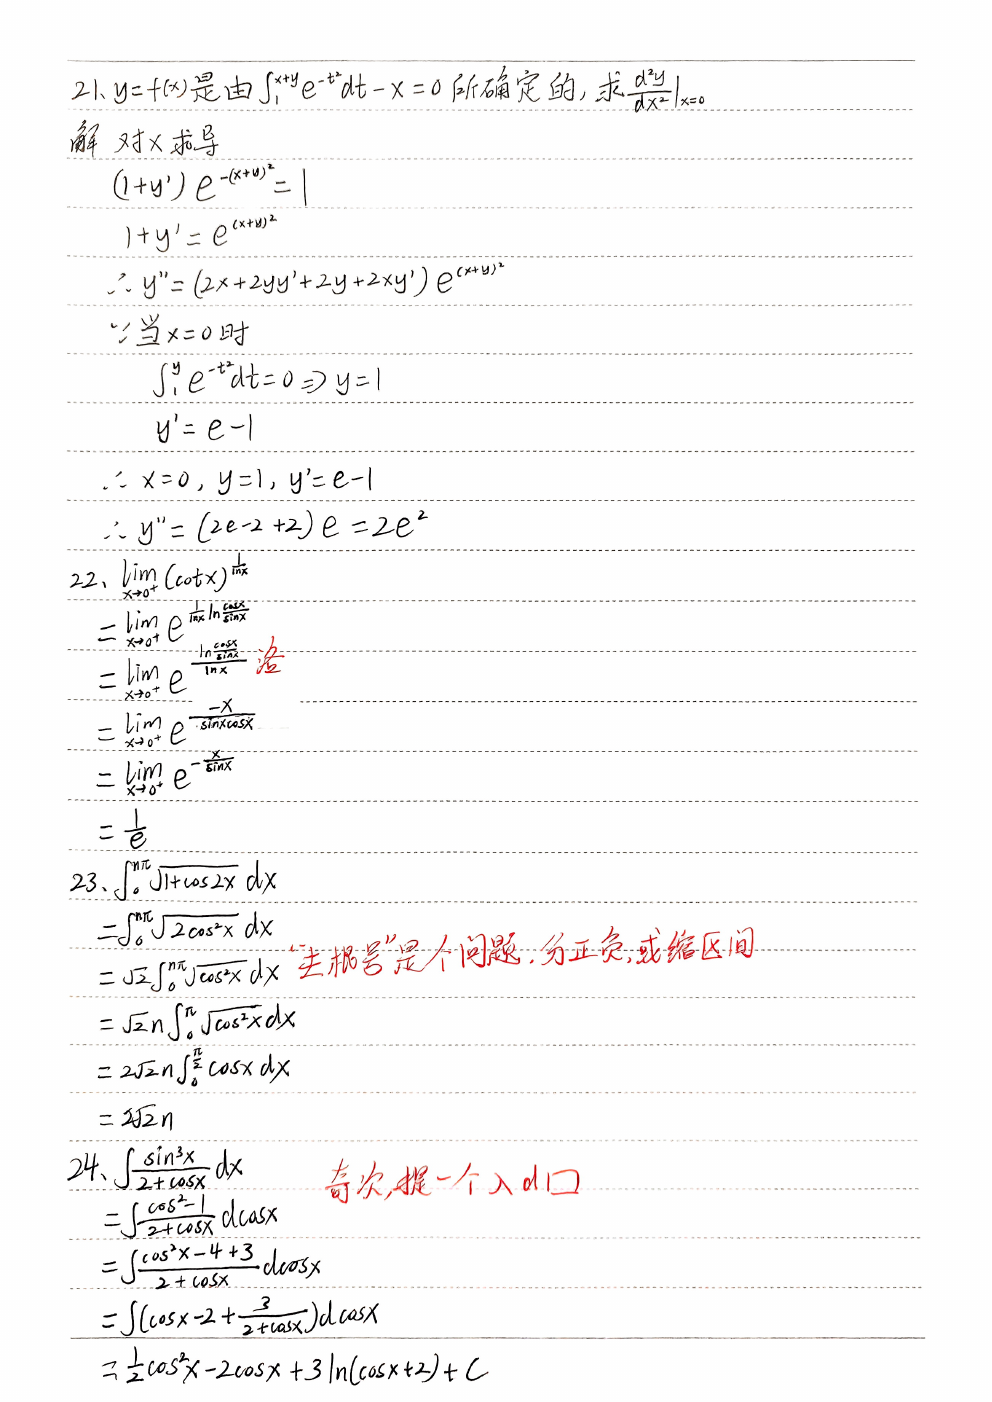 21、y=f(x)是由∫₁^{x+y} e^{-t²}dt-x=0所确定的,求d²y/dx²|_{x=0}
解 对x求导
(1+y')e^{-(x+y)²}=1
1+y'=e^{(x+y)²}
∴ y''=(2x+2yy'+2y+2xy')e^{(x+y)²}
∵当x=0时
∫₁^y e^{-t²}dt=0⇒y=1
y'=e-1
∴ x=0, y=1, y'=e-1
∴ y''=(2e-2+2)e=2e²
22、lim_{x→0⁺}(cotx)^{1/lnx}
=lim_{x→0⁺} e^{1/lnx ln cosx/sinx}
=lim_{x→0⁺} e^{ln cosx/sinx / lnx} 洛
=lim_{x→0⁺} e^{-x/sinxcosx}
=lim_{x→0⁺} e^{-x/sinx}
=1/e
23、∫₀^{nπ}√(1+cos2x) dx
=∫₀^{nπ}√(2cos²x) dx
=√2∫₀^{nπ}√(cos²x) dx “去根号”是个问题.分正负,或缩区间
=√2n∫₀^π√(cos²x)dx
=2√2n∫₀^{π/2}cosx dx
=2√2n
24、∫sin³x/(2+cosx) dx 奇次,提一个入d口
=∫(cos²-1)/(2+cosx) dcosx
=∫(cos²x-4+3)/(2+cosx) dcosx
=∫(cosx-2+3/(2+cosx))dcosx
=1/2cos²x-2cosx+3ln(cosx+2)+C